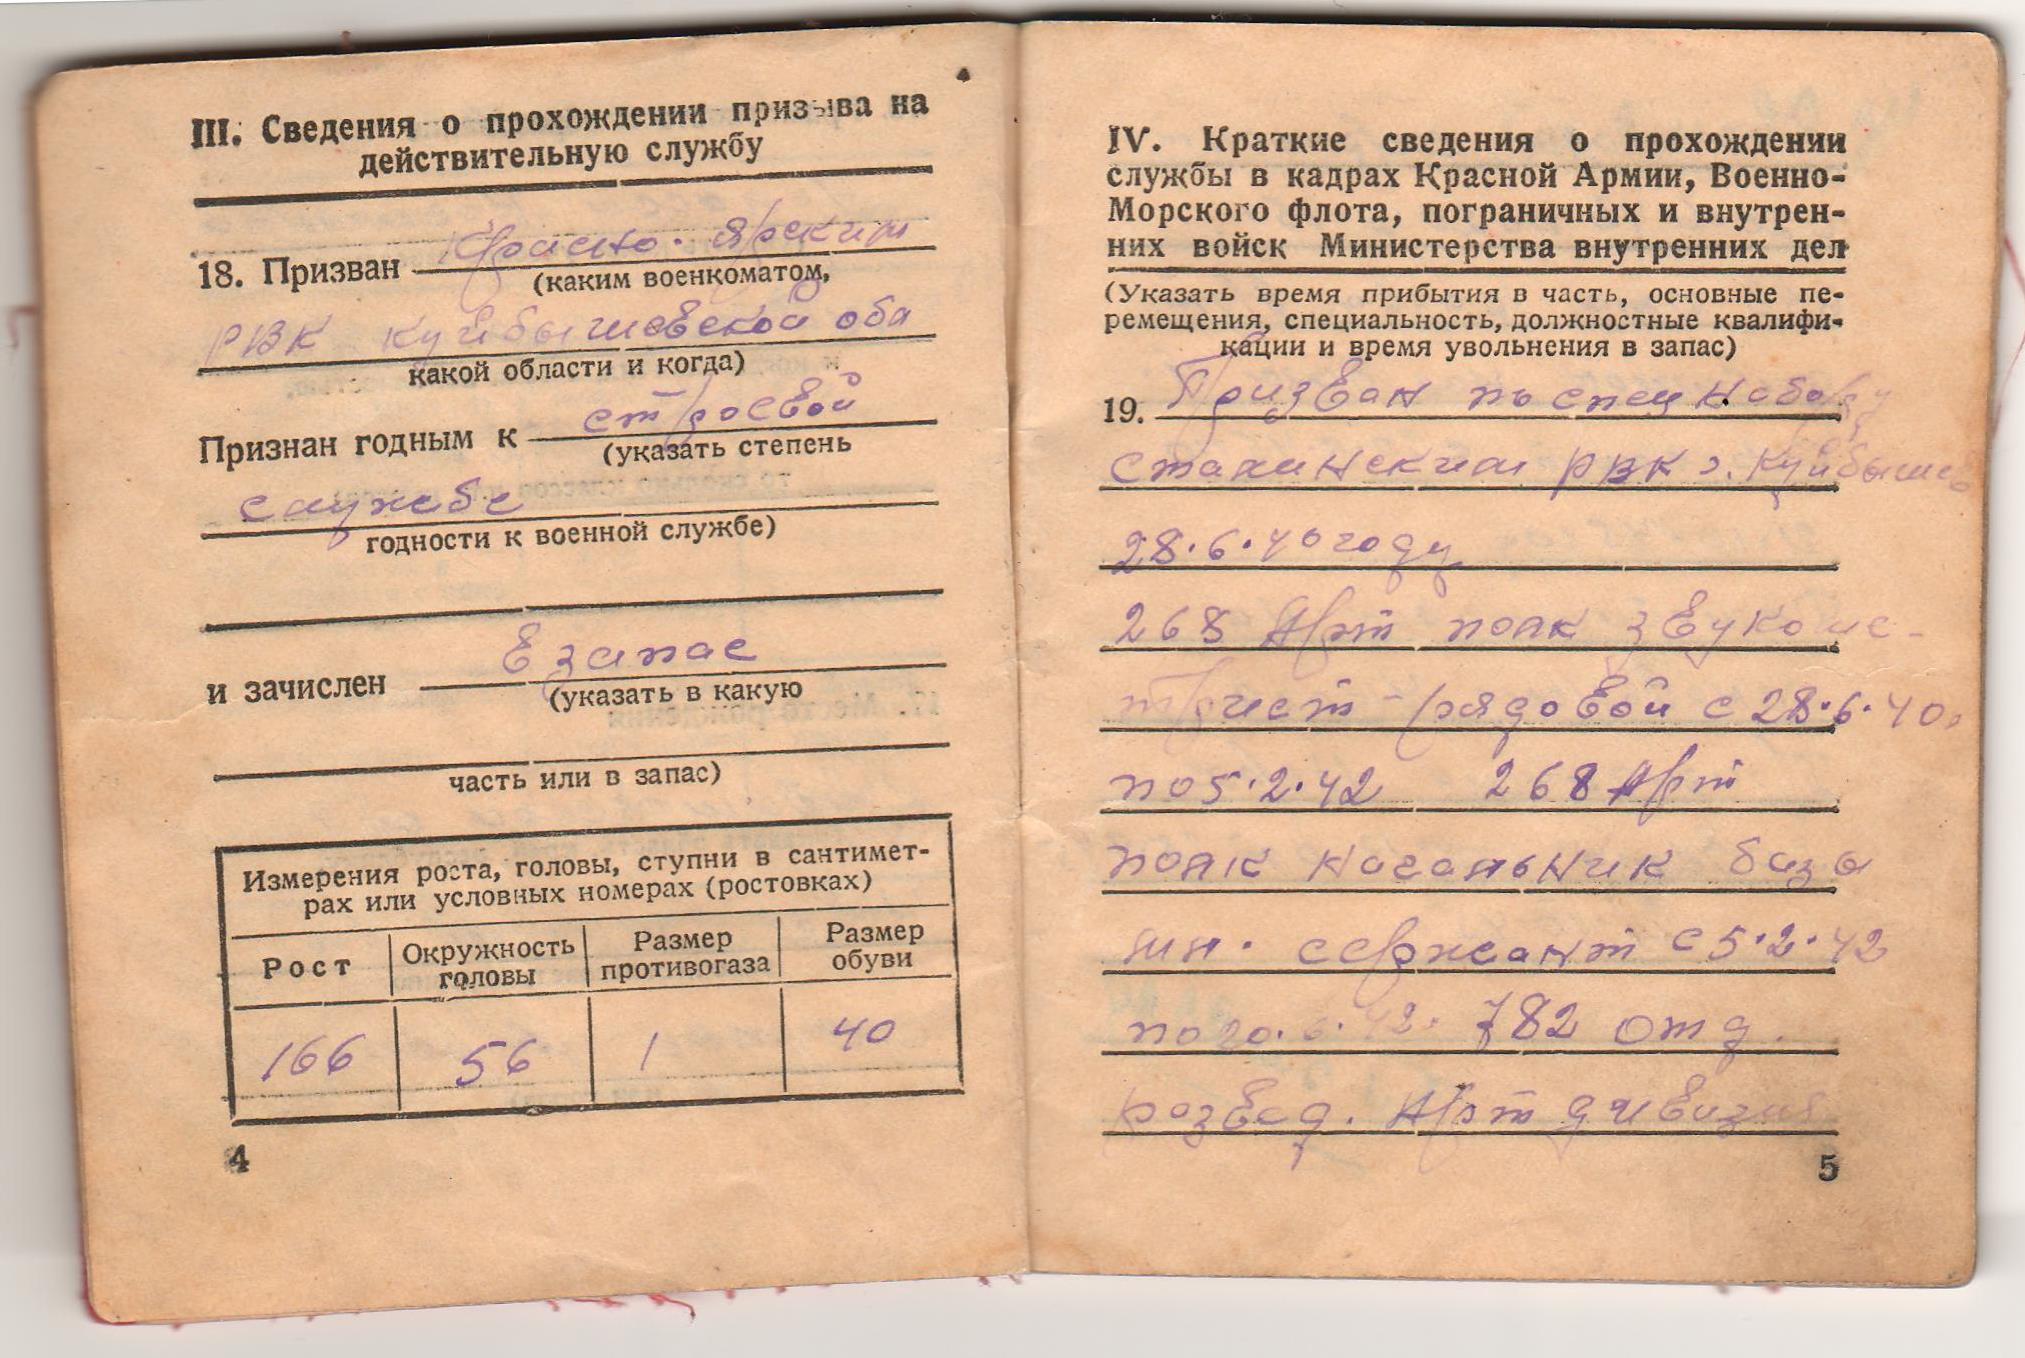 III. Сведения о прохождении призыва на
действительную службу
Красно. Ярским
18. Призван
(каким военкоматом,
РВК Куйбышевской обл
какой области и когда)
строевой
Признан годным к
(указать степень
службе
годности к военной службе)
В запас
и зачислен
(указать в какую
часть или в запас)
Измерения роста, головы, ступни в сантимет-
рах или условных номерах (ростовках)
Рост Окружность головы Размер противогаза Размер обуви
166 56 1 40
4
IV. Краткие сведения о прохождении
службы в кадрах Красной Армии, Военно-
Морского флота, пограничных и внутрен-
них войск Министерства внутренних дел
(Указать время прибытия в часть, основные пе-
ремещения, специальность, должностные квалифи-
кации и время увольнения в запас)
19. Призван по спец набору
Сталинским РВК г. Куйбышев
28.6.40 году
268 Арт полк звуко
рядовой с 28.6.40
по 5.2.42 268 Арт
полк начальник база
мл. сержант с 5.2.42
по 20.6.42. 782 отд.
развед. Арт дивизия
5